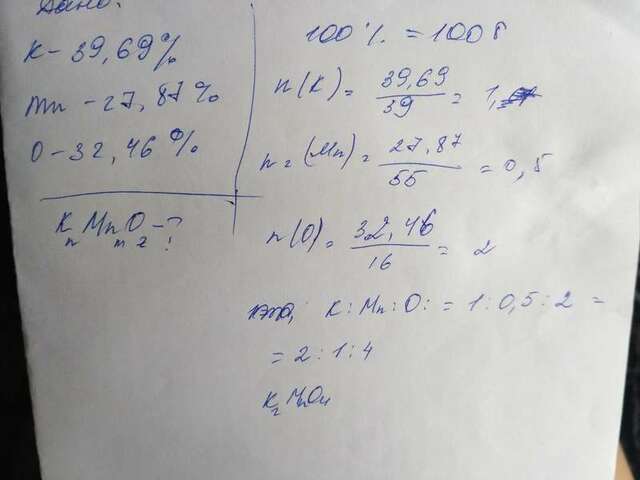 Дано:
K - 39,69%
Mn - 27,87%
O - 32,46%
KnMnmOz - ?
100% = 100г
n(K) = 39,69/39 = 1,
n = (Mn) = 27,87/55 = 0,5
n(O) = 32,46/16 = 2
K:Mn:O: = 1:0,5:2 =
= 2:1:4
K2MnO4